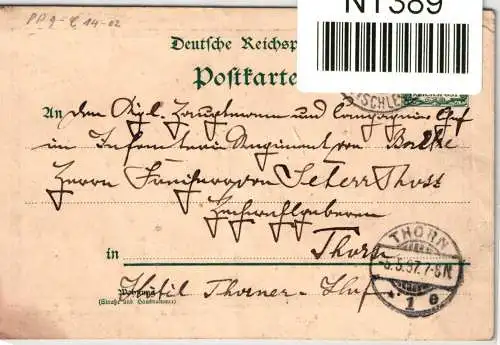 PP 9 - C 14-02
N1389
Deutsche Reichsp
Postkarte
(SCHLE
An den Kgl. Hauptmann und Compagnie Chef
im Infanterie Regiment von Borcke
Herrn Freiherr von
Hochwohlgeboren
THORN
in Thorn
-5.5.97.7-8N.
1 e
Wohnung
(Straße und Hausnummer)
Hôtel Thorner-Hof